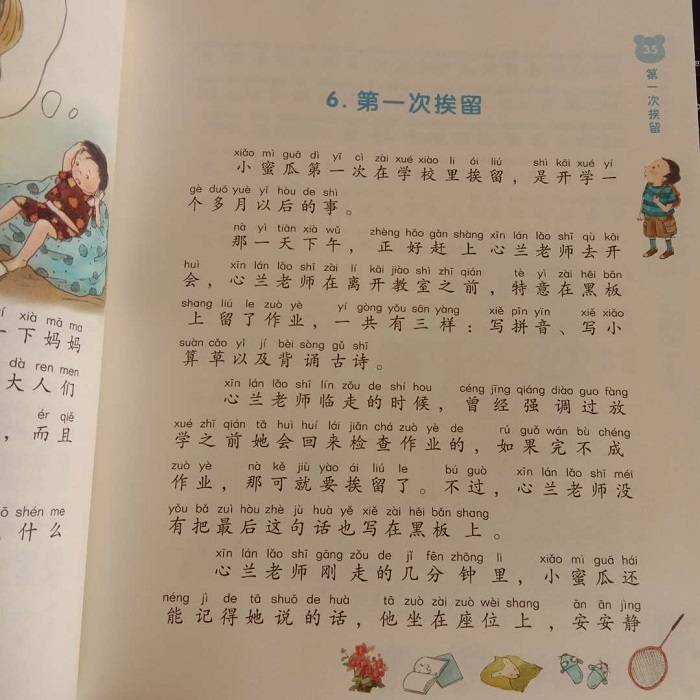 í xià mā ma
一下妈妈
dà ren men
大人们
ér qiě
，而且
ō shén me
，什么
35
第一次挨留
6. 第一次挨留
xiǎo mì guā dì yī cì zài xué xiào li ái liú shì kāi xué yí
小蜜瓜第一次在学校里挨留，是开学一
gè duō yuè yǐ hòu de shì
个多月以后的事。
nà yì tiān xià wǔ zhèng hǎo gǎn shàng xīn lán lǎo shī qù kāi
那一天下午，正好赶上心兰老师去开
huì xīn lán lǎo shī zài lí kāi jiào shì zhī qián tè yì zài hēi bǎn
会，心兰老师在离开教室之前，特意在黑板
shang liú le zuò yè yí gòng yǒu sān yàng xiě pīn yīn xiě xiǎo
上留了作业，一共有三样：写拼音、写小
suàn cǎo yǐ jí bèi sòng gǔ shī
算草以及背诵古诗。
xīn lán lǎo shī lín zǒu de shí hou céng jīng qiáng diào guo fàng
心兰老师临走的时候，曾经强调过放
xué zhī qián tā huì huí lái jiǎn chá zuò yè de rú guǒ wán bù chéng
学之前她会回来检查作业的，如果完不成
zuò yè nà kě jiù yào ái liú le bú guò xīn lán lǎo shī méi
作业，那可就要挨留了。不过，心兰老师没
yǒu bǎ zuì hòu zhè jù huà yě xiě zài hēi bǎn shang
有把最后这句话也写在黑板上。
xīn lán lǎo shī gāng zǒu de jǐ fēn zhōng li xiǎo mì guā hái
心兰老师刚走的几分钟里，小蜜瓜还
néng jì de tā shuō de huà tā zuò zài zuò wèi shang ān ān jìng
能记得她说的话，他坐在座位上，安安静